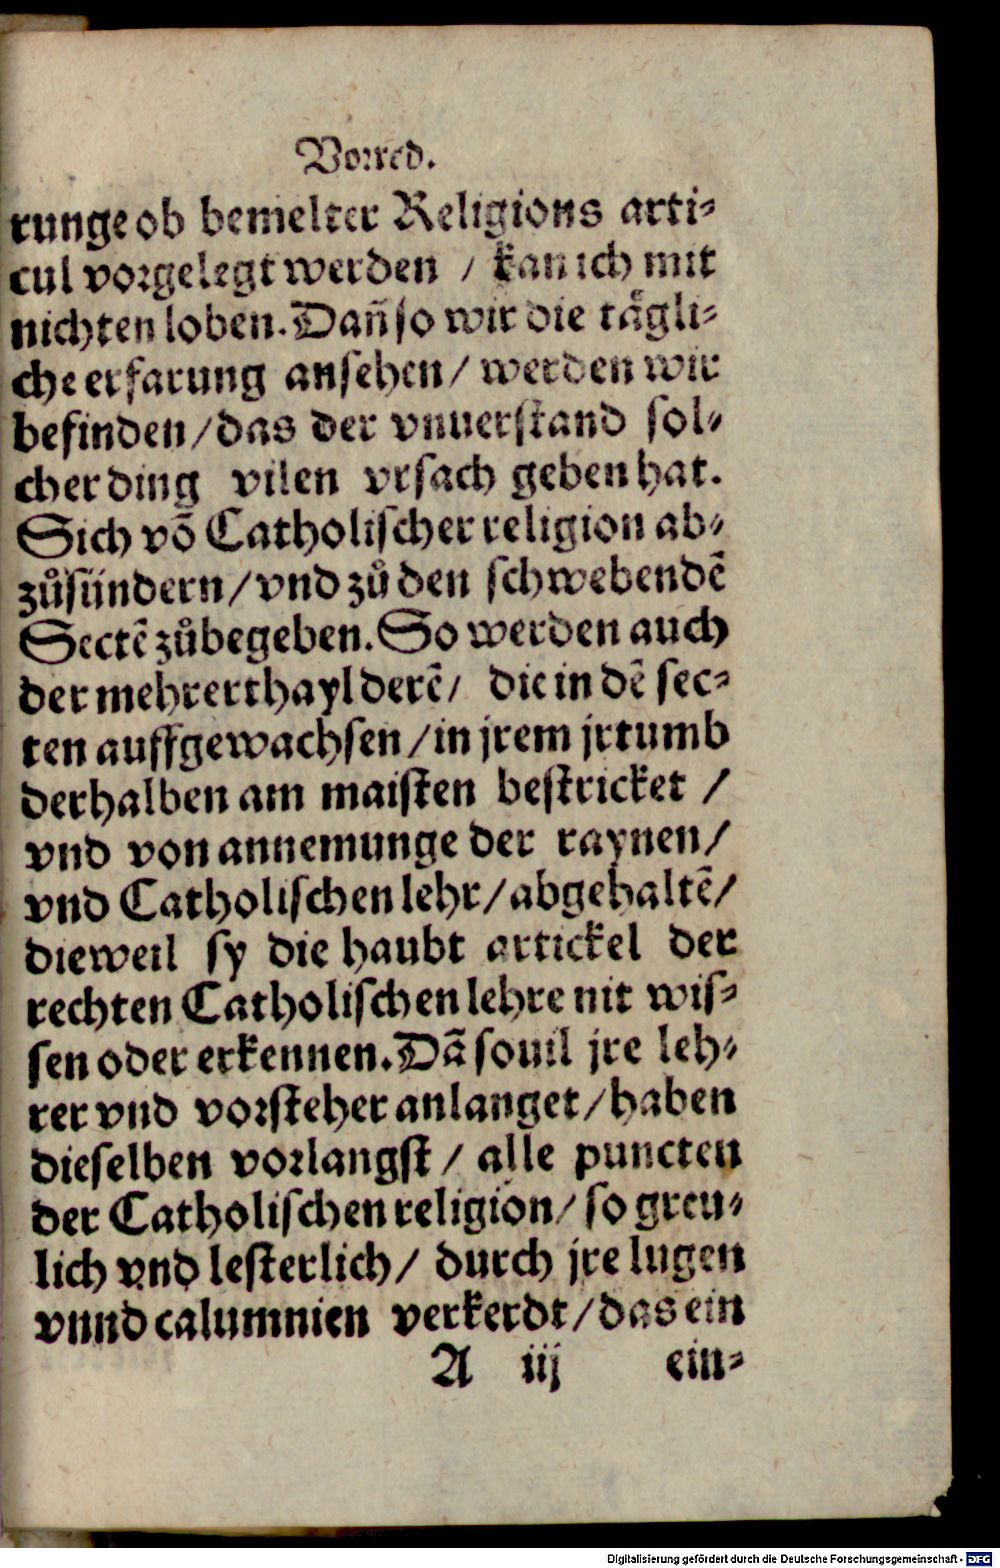 Vorred.
runge ob bemelter Religions arti-
cul vorgelegt werden / kan ich mit
nichten loben. Dañ so wir die taͤgli-
che erfarung ansehen / werden wir
befinden / das der vnuerstand sol-
cher ding vilen vrsach geben hat.
Sich võ Catholischer religion ab-
zuͦsündern / vnd zuͦ den schwebendẽ
Sectẽ zuͦbegeben. So werden auch
der mehrerthayl derẽ / die in dẽ sec-
ten auffgewachsen / in jrem jrtumb
derhalben am maisten bestricket /
vnd von annemunge der raynen /
vnd Catholischen lehr / abgehaltẽ /
dieweil sy die haubt artickel der
rechten Catholischen lehre nit wis-
sen oder erkennen. Dã souil jre leh-
rer vnd vorsteher anlanget / haben
dieselben vorlangst / alle puncten
der Catholischen religion / so greu-
lich vnd lesterlich / durch jre lugen
vnnd calumnien verkerdt / das ein
A iij ein-
Digitalisierung gefördert durch die Deutsche Forschungsgemeinschaft - DFG